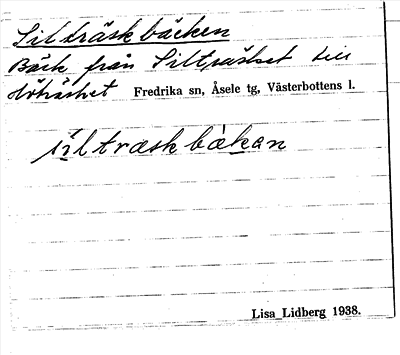 Silträskbäcken
Bäck från Silträsket till
Fredrika sn, Åsele tg, Västerbottens l.
siltræskbäkan
Lisa Lidberg 1938.